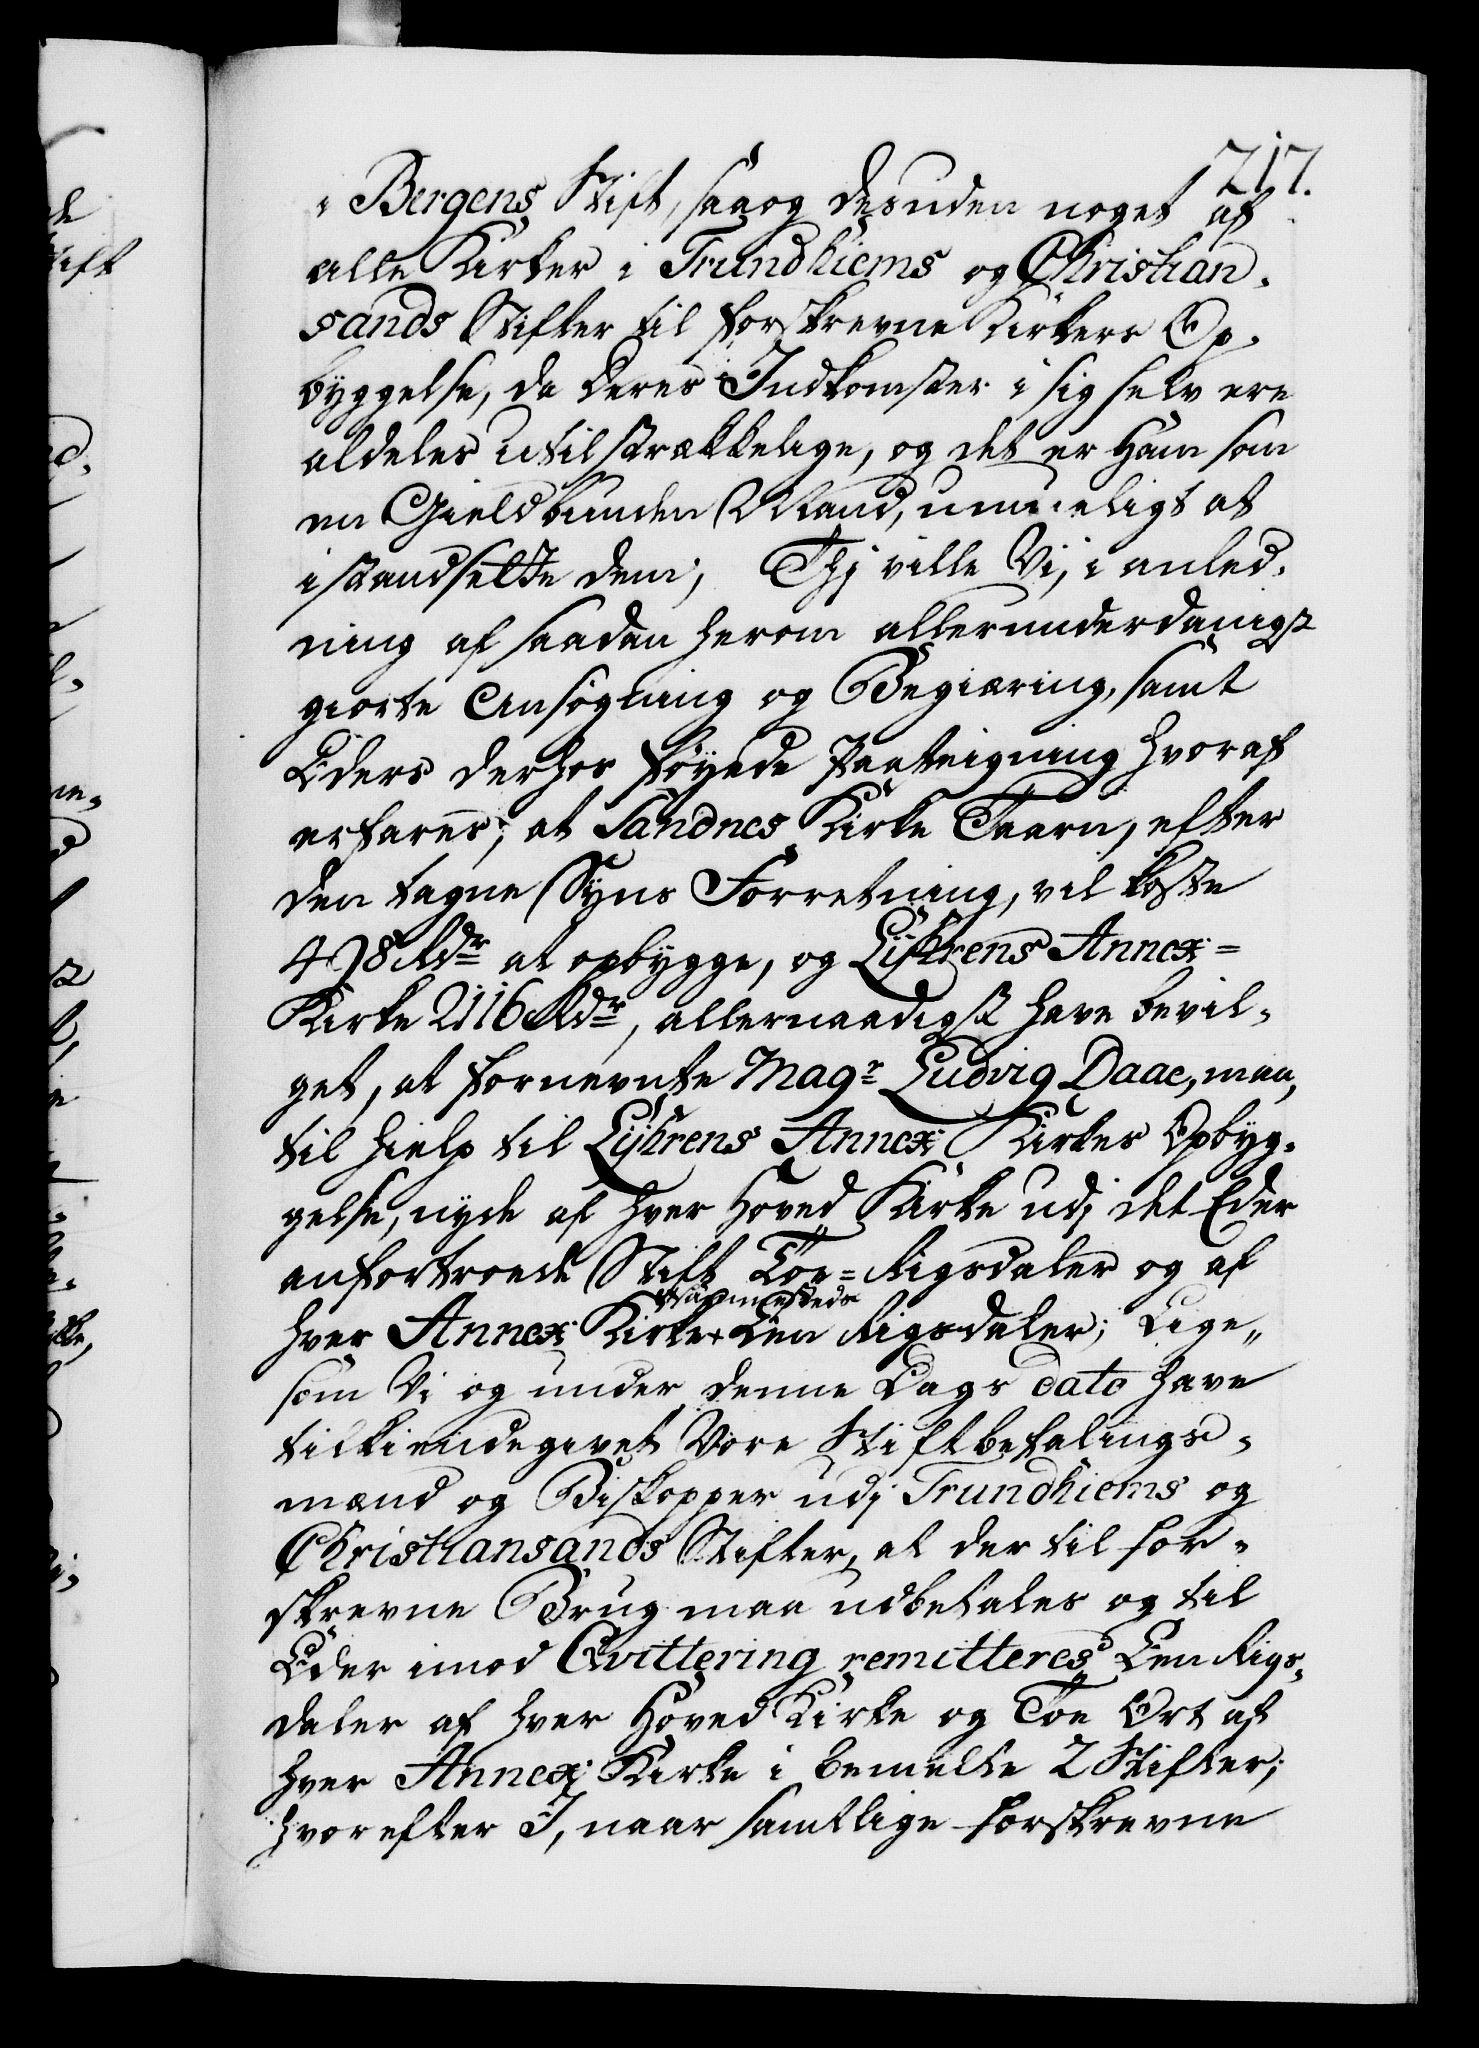 217.
i Bergens Stift, saaog desuden noget af
alle Kirker i Trundhiems og Christian-
sands Stifter til forskrevne Kirkers Op-
byggelse, da deres Indkomster i sig selv ere
aldeles utilstrækkelige, og det er Ham som
en Gieldbunden Mand, umueligt at
istandsette dem; Thj ville Vi, i anled-
ning af saadan herom allerunderdanigst
giorte Ansøgning og Begiæring, samt
Eders derhos føyede Paateigning hvoraf
erfares, at Sandnes Kirke Taarn, efter
den tagne Syns Forretning, vil koste
498 Rdr at opbygge, og Lyhrens Annex-
Kirke 2116 Rdr, allernaadigst have bevil-
get, at fornevnte Magr Ludvig Daae, maa,
til hielp til Lyhrens Annex Kirkes Opbyg-
gelse, nyde af hver Hoved Kirke udj det Eder
anfortroede Stift Toe Rigsdaler og af
hver Annex Kirke + Een Rigsdaler; Lige-
sammesteds
som Vi og under denne Dags dato have
tilkiendegivet Vore Stiftbefalings-
mænd og Biskopper udj Trundhiems og
Christiansands Stifter, at der til for-
skrevne Brug maa udbetales og til
Eder imod Qvittering remitteres Een Rigs-
daler af hver Hoved Kirke og Toe Ort af
hver Annex Kirke i bemelte 2 Stifter;
hvorefter I, naar samtlige forskrevne